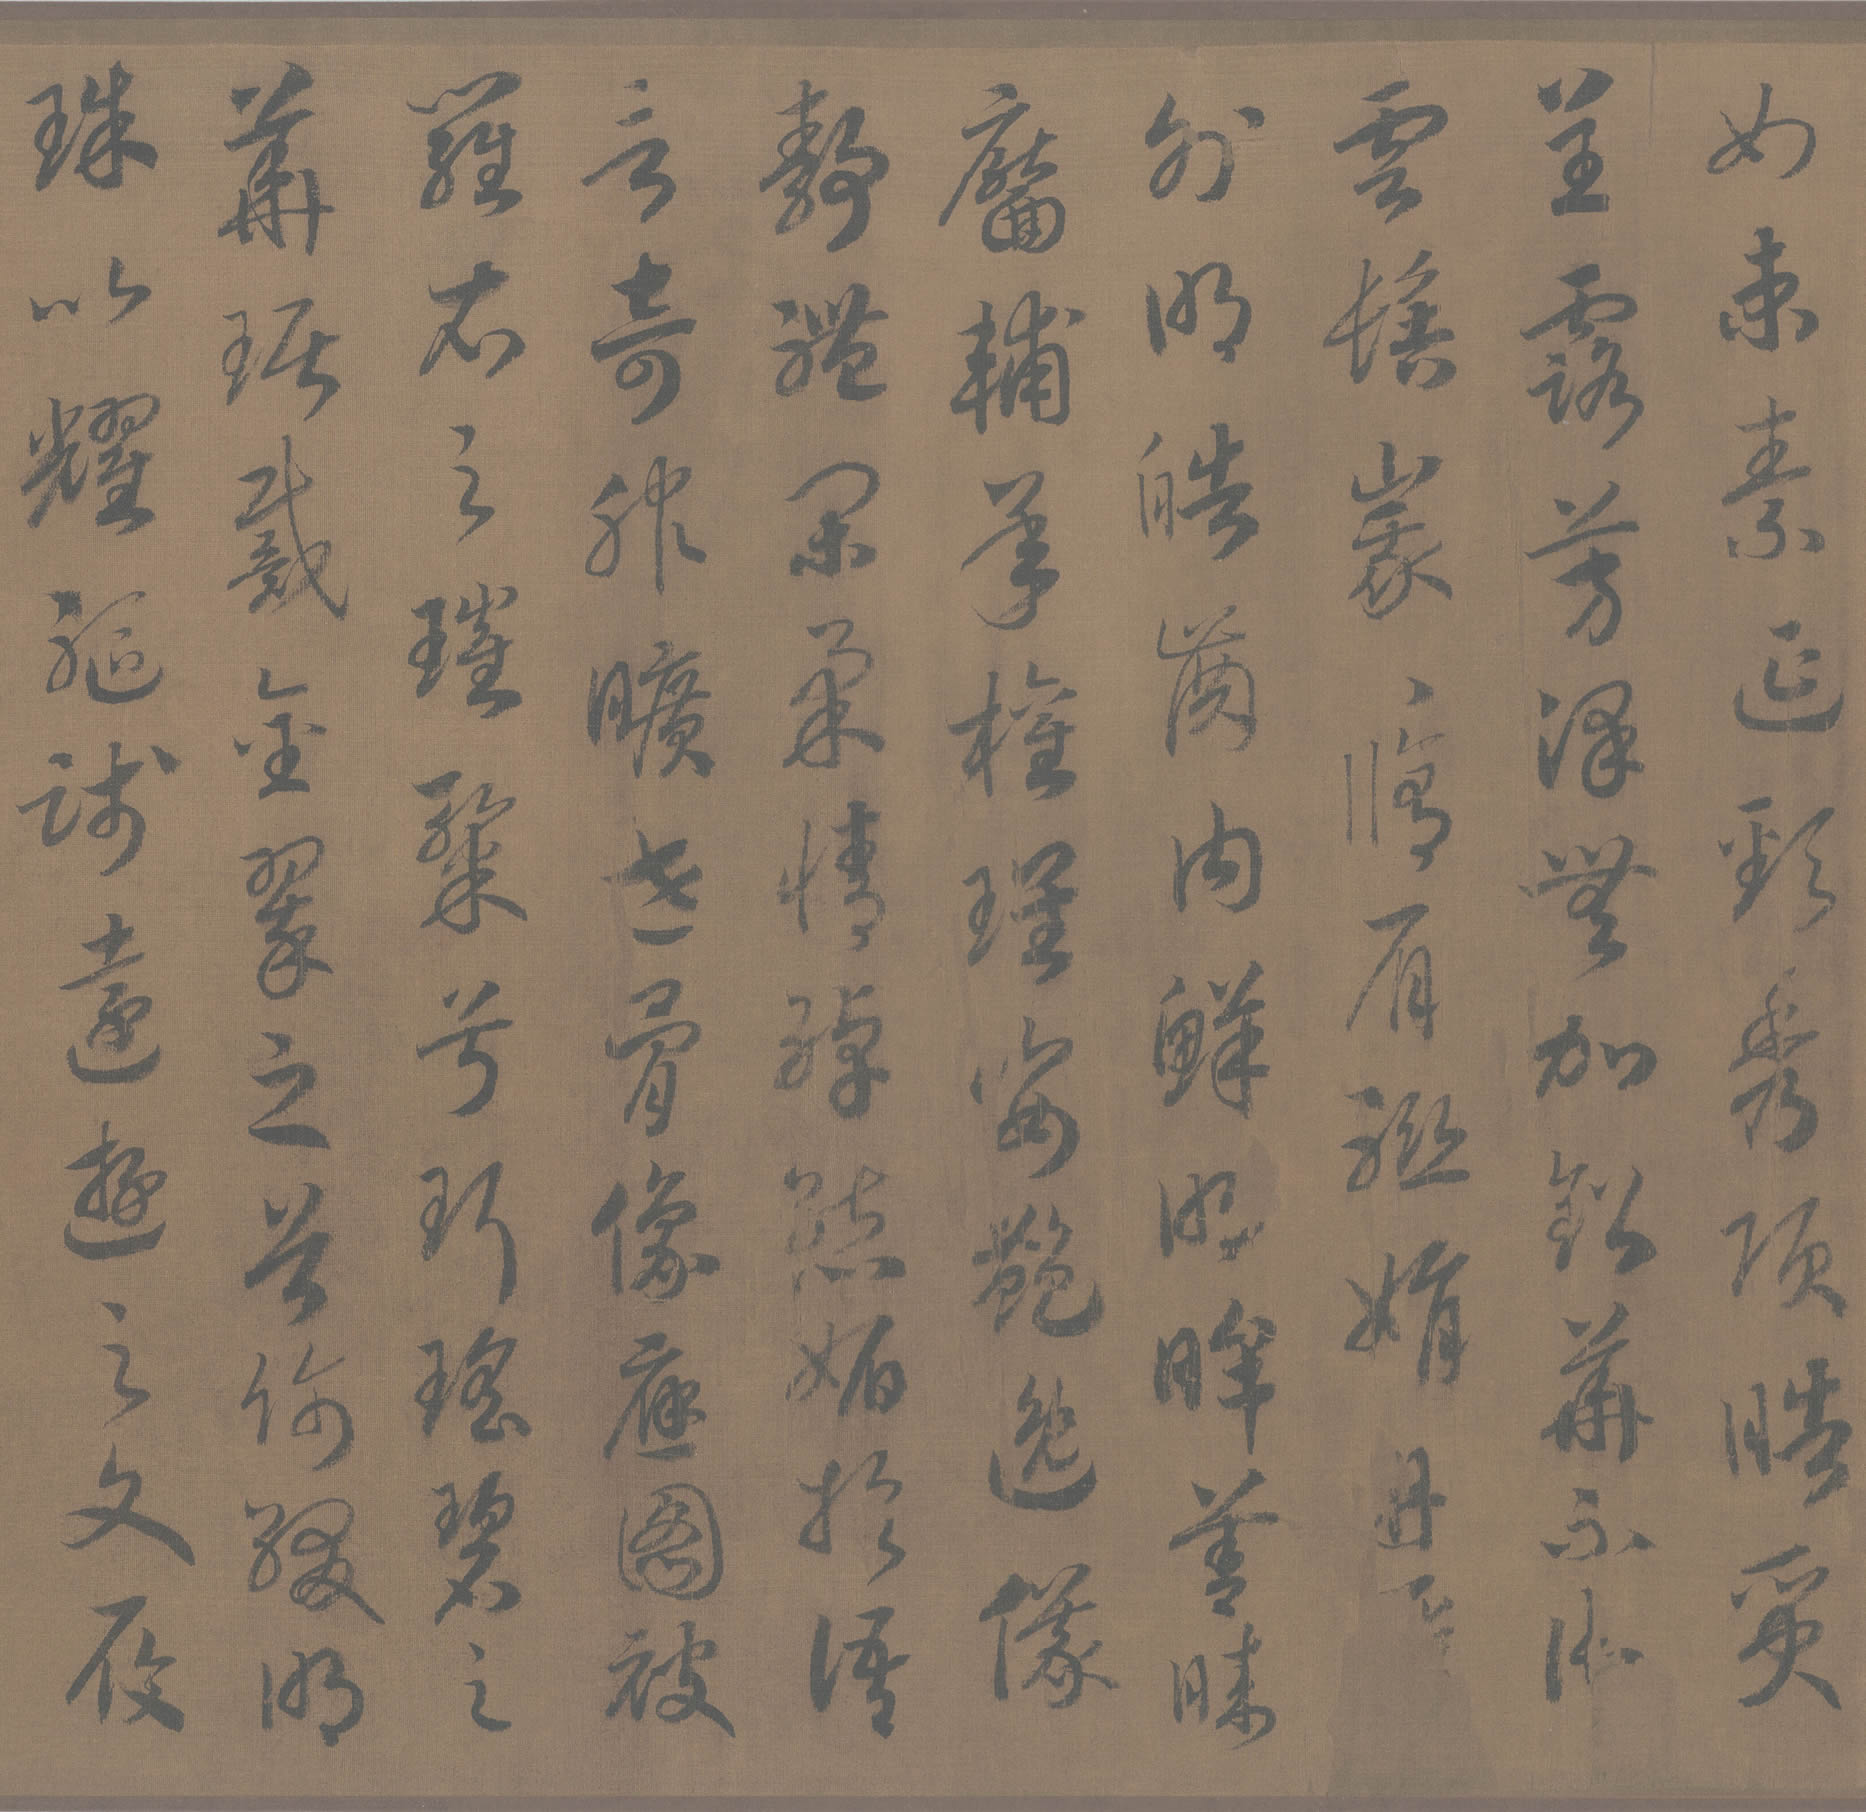 如束素延頸秀項皓質
呈露芳澤無加鉛華不御
雲髻峩〻脩眉聯娟丹
外朗皓齒内鮮明眸善睞
靨輔承權瓌姿艷逸儀
靜體閑柔情綽態媚於語
言奇服曠世骨像應圖被
羅衣之璀粲兮珥瑤碧之
華琚戴金翠之首飾綴明
珠以耀軀踐遠遊之文履